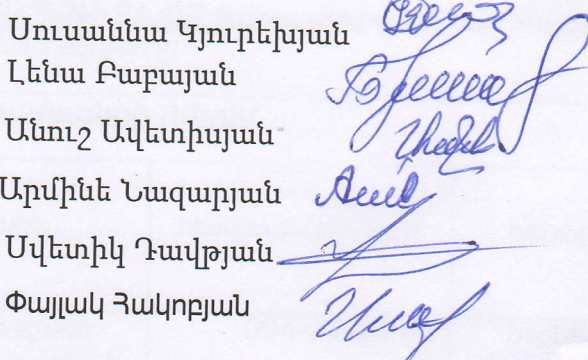 Սուսաննա Կյուրեխյան
Լենա Բաբայան
Անուշ Ավետիսյան
Արմինե Նազարյան
Սվետիկ Դավթյան
Փայլակ Հակոբյան